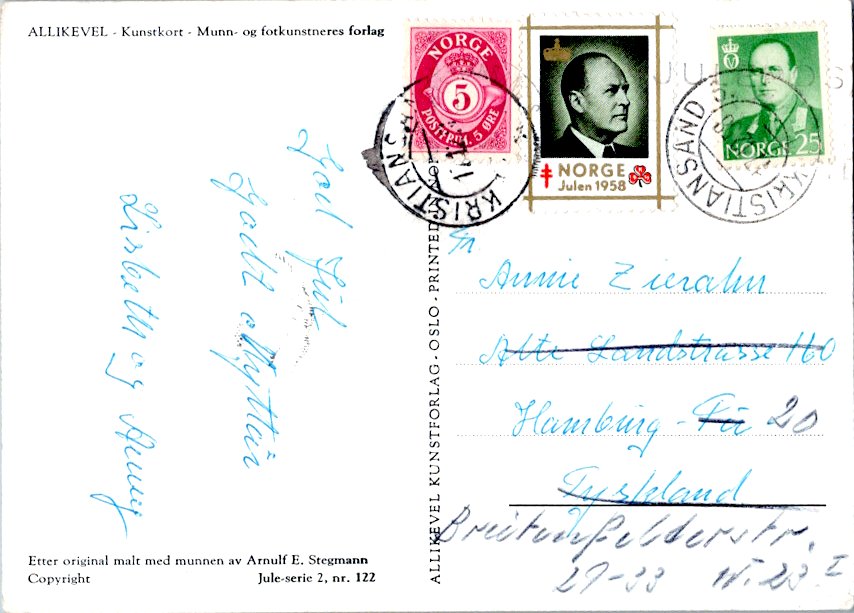 ALLIKEVEL - Kunstkort - Munn- og fotkunstneres forlag
God Jul
Godt Nyttår
Lisbeth og Anny
Etter original malt med munnen av Arnulf E. Stegmann
Copyright
Jule-serie 2, nr. 122
ALLIKEVEL KUNSTFORLAG - OSLO - PRINTED
NORGE
5
POSTFRIM. 5 ØRE
KRISTIANSAND
NORGE
Julen 1958
NORGE 25
KRISTIANSAND
Annie Zierahn
Alte Landstrasse 160
Hamburg - Fu 20
Tyskland
Breitenfelderstr.
29-33